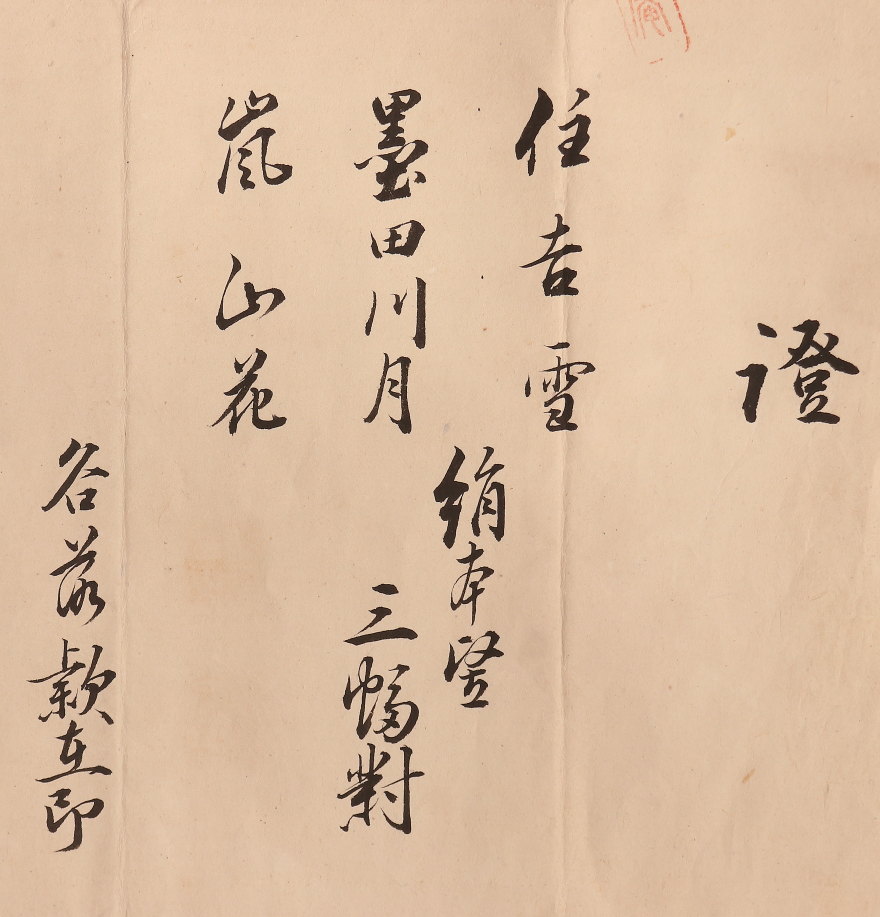 證
住吉雪
墨田川月
嵐山花
絹本竪
三幅對
各落款在印